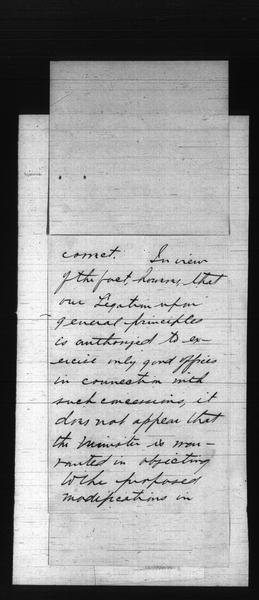 correct. In view
of the fact, however, that
our Legation upon
general principles
is authorized to ex-
ercise only good offices
in connection with
such concessions, it
does not appear that
the Minister is war-
ranted in objecting
to the proposed
modifications in